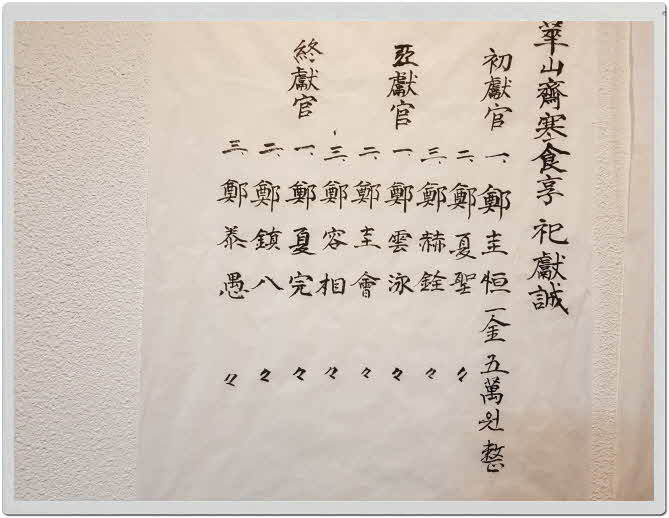 華山齋寒食享祀獻誠
初獻官 一. 鄭圭恒 一金五萬원整
二. 鄭夏聖 〃
三. 鄭赫銓 〃
亞獻官 一. 鄭雲泳 〃
二. 鄭圭會 〃
三. 鄭容相 〃
終獻官 一. 鄭夏完 〃
二. 鄭鎮八 〃
三. 鄭泰愚 〃